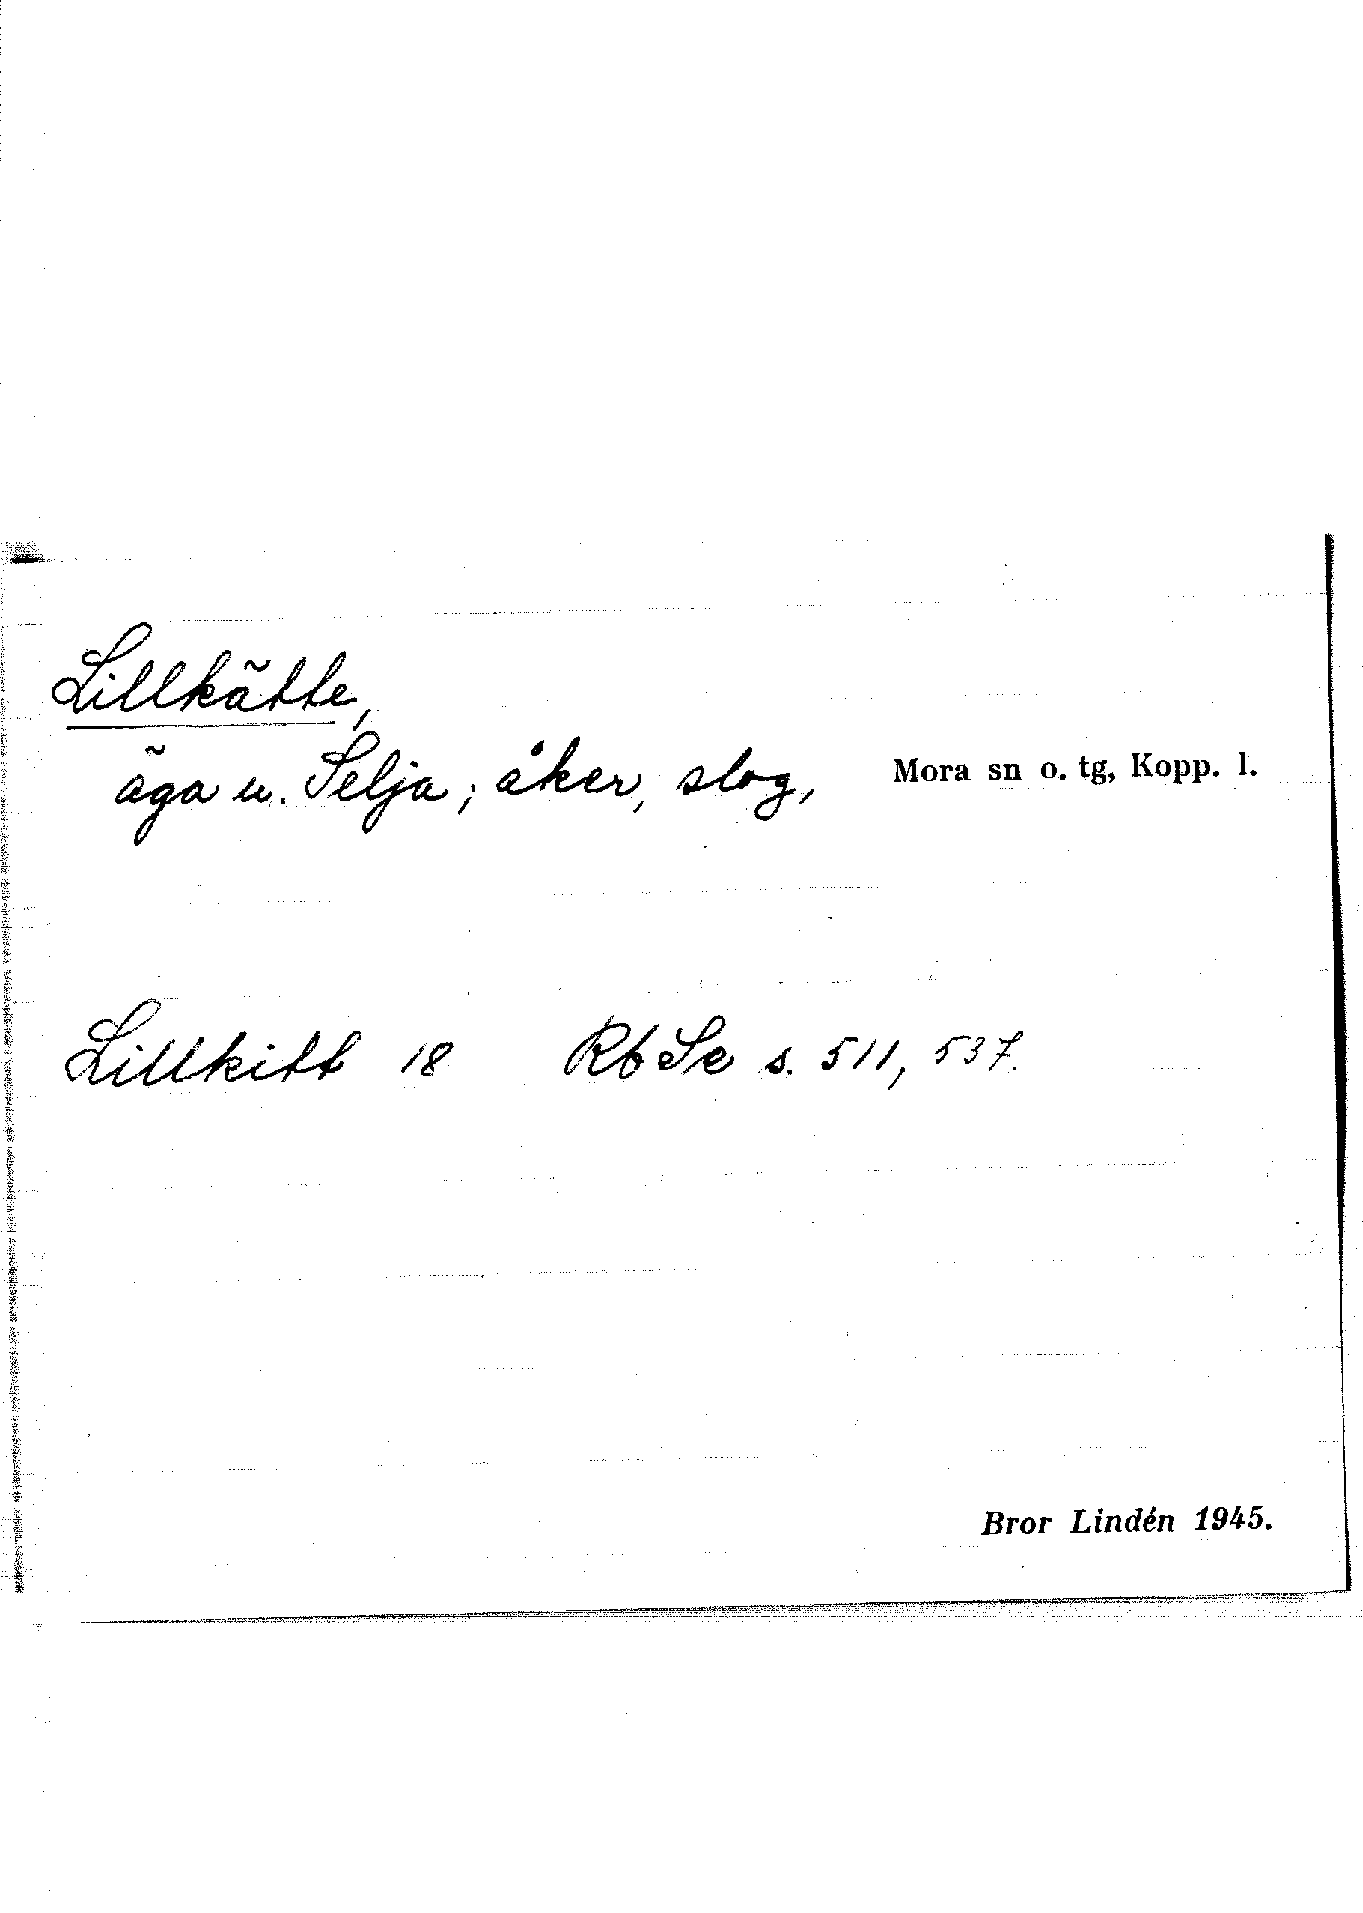 Lillkätte,
äga u. Selja; åker, slog,
Mora sn o. tg, Kopp. l.
Lillkitt 18 Rb Se s. 511, 537.
Bror Lindén 1945.